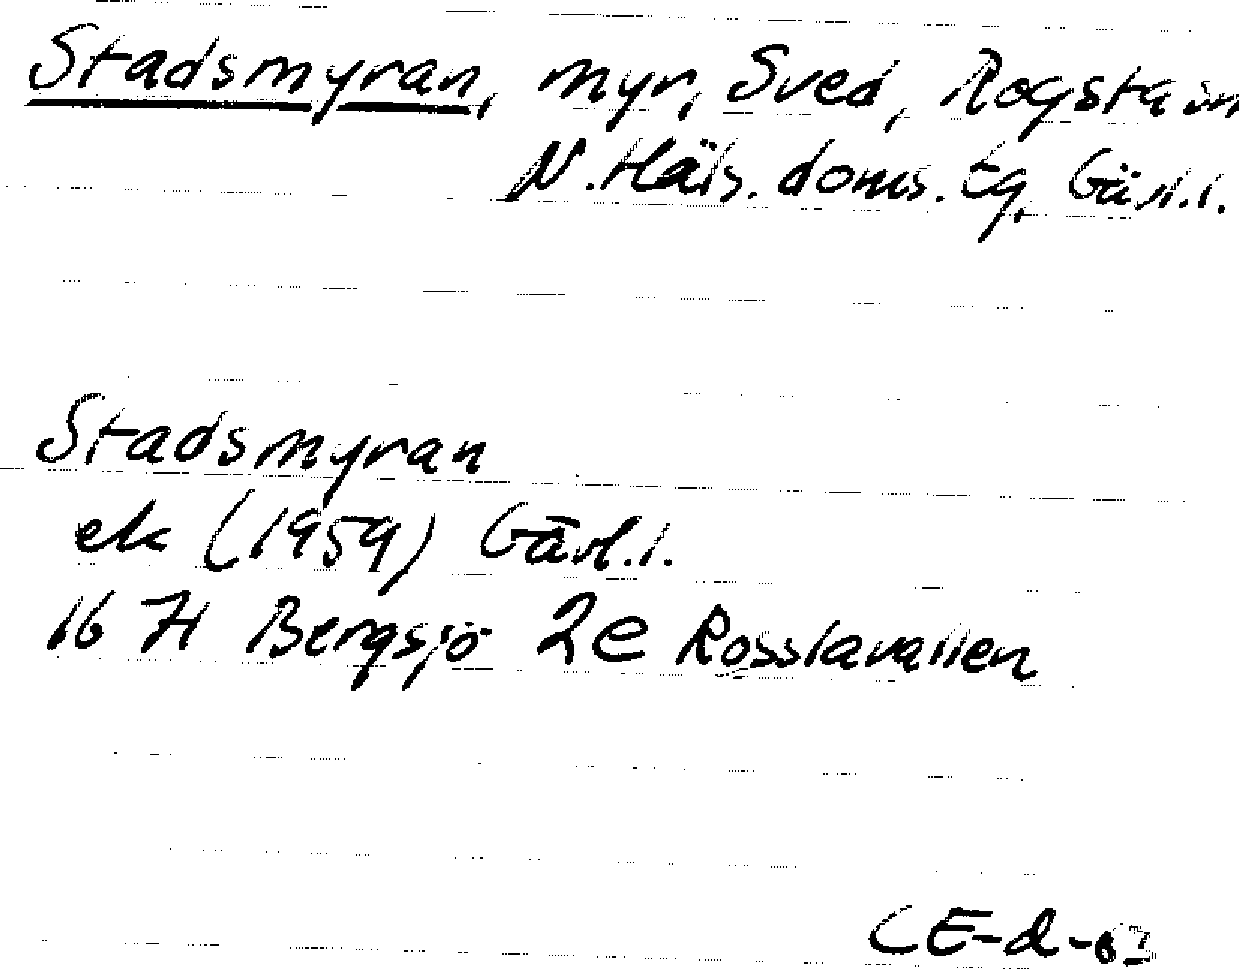 Stadsmyran, myr, Sved, Rogsta sn
N. Häls. doms. tg, Gävl. l.
Stadsmyran
ek (1959) Gävl. l.
16 H Bergsjö 2e Rosslavallen
CE-d-63